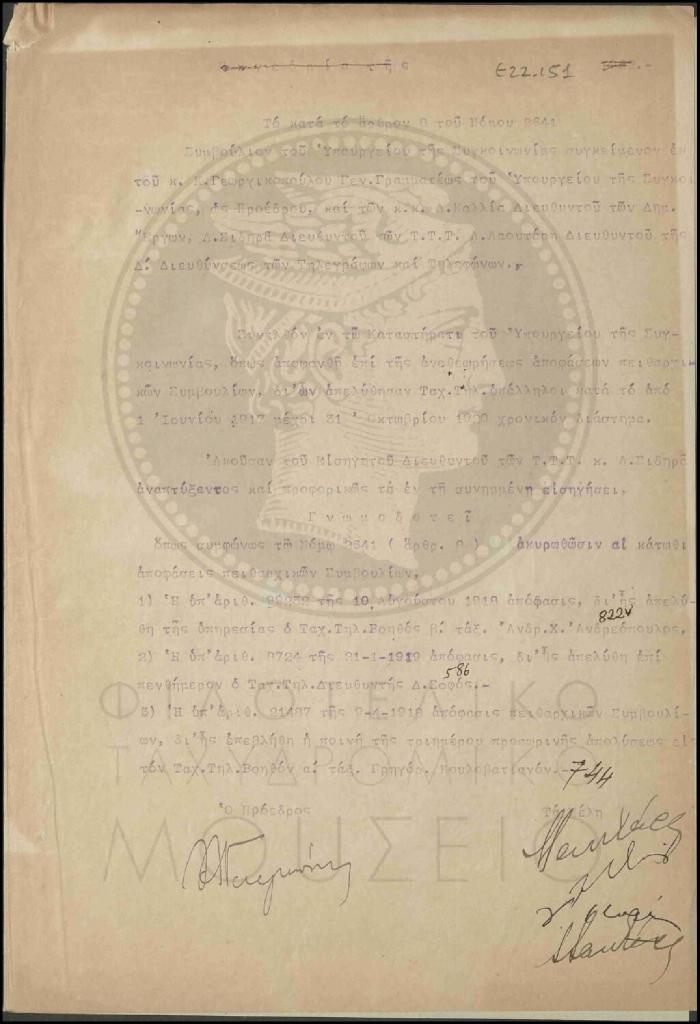 Ε22.151
Τό κατά τό ἄρθρον 8 τοῦ Νόμου 2641
Συμβούλιον τοῦ Ὑπουργείου τῆς Συγκοινωνίας συγκείμενον ἐκ
τοῦ κ. Γεωργικοπούλου Γεν.Γραμματέως τοῦ Ὑπουργείου τῆς Συγκοι
-νωνίας, ὡς Προέδρου, καί τῶν κ.κ. Δ.Καλλία Διευθυντοῦ τῶν Δημ.
Ἔργων, Δ.Σιδηρᾶ Διευθυντοῦ τῶν Τ.Τ.Τ. Λ.Λαουτέρη Διευθυντοῦ τῆς
Δ. Διευθύνσεως τῶν Τηλεγράφων καί Τηλεφώνων.
Συνελθόν ἐν τῷ Καταστήματι τοῦ Ὑπουργείου τῆς Συγ-
κοινωνίας, ὅπως ἀποφανθῇ ἐπί τῆς ἀναθεωρήσεως ἀποφάσεων πειθαρχι-
κῶν Συμβουλίων, δι'ὧν ἀπελύθησαν Ταχ.Τηλ.ὑπάλληλοι κατά τό ἀπό
1 Ἰουνίου 1917 μέχρι 31 Ὀκτωβρίου 1920 χρονικόν διάστημα.
Ἀκοῦσαν τοῦ Εἰσηγητοῦ Διευθυντοῦ τῶν Τ.Τ.Τ. κ. Δ.Σιδηρᾶ
ἀναπτύξαντος καί προφορικῶς τά ἐν τῇ συνημμένῃ εἰσηγήσει.
Γνωμοδοτεῖ
ὅπως συμφώνως τῷ Νόμῳ 2641 ( ἄρθρ. 8 ) ἀκυρωθῶσιν αἱ κάτωθι
ἀποφάσεις πειθαρχικῶν Συμβουλίων,
1) Ἡ ὑπ'ἀριθ. τῆς 10 Αὐγούστου 1918 ἀπόφασις, δι'ἧς ἀπελύ-
θη τῆς ὑπηρεσίας ὁ Ταχ.Τηλ.Βοηθός β. τάξ. Ἀνδρ.Χ.Ἀνδρεόπουλος,
822
2) Ἡ ὑπ'ἀριθ. 8724 τῆς 21-1-1919 ἀπόφασις, δι'ἧς ἀπελύθη ἐπί
πενθήμερον ὁ Ταχ.Τηλ.Διευθυντής Δ.Σοφός.-
586
3) Ἡ ὑπ'ἀριθ. 21487 τῆς 9-4-1918 ἀπόφασις πειθαρχικῶν Συμβουλί-
ων, δι'ἧς ἐπεβλήθη ἡ ποινή τῆς τριημέρου προσωρινῆς ἀπολύσεως εἰς
τόν Ταχ.Τηλ.Βοηθόν α. τάξ. Γρηγόρ. Κουλοβατιανόν.-
744
Ὁ Πρόεδρος
Τά μέλη
ΦΙΛΟΤΕΛΙΚΟ
ΤΑΧΥΔΡΟΜΙΚΟ
ΜΟΥΣΕΙΟ